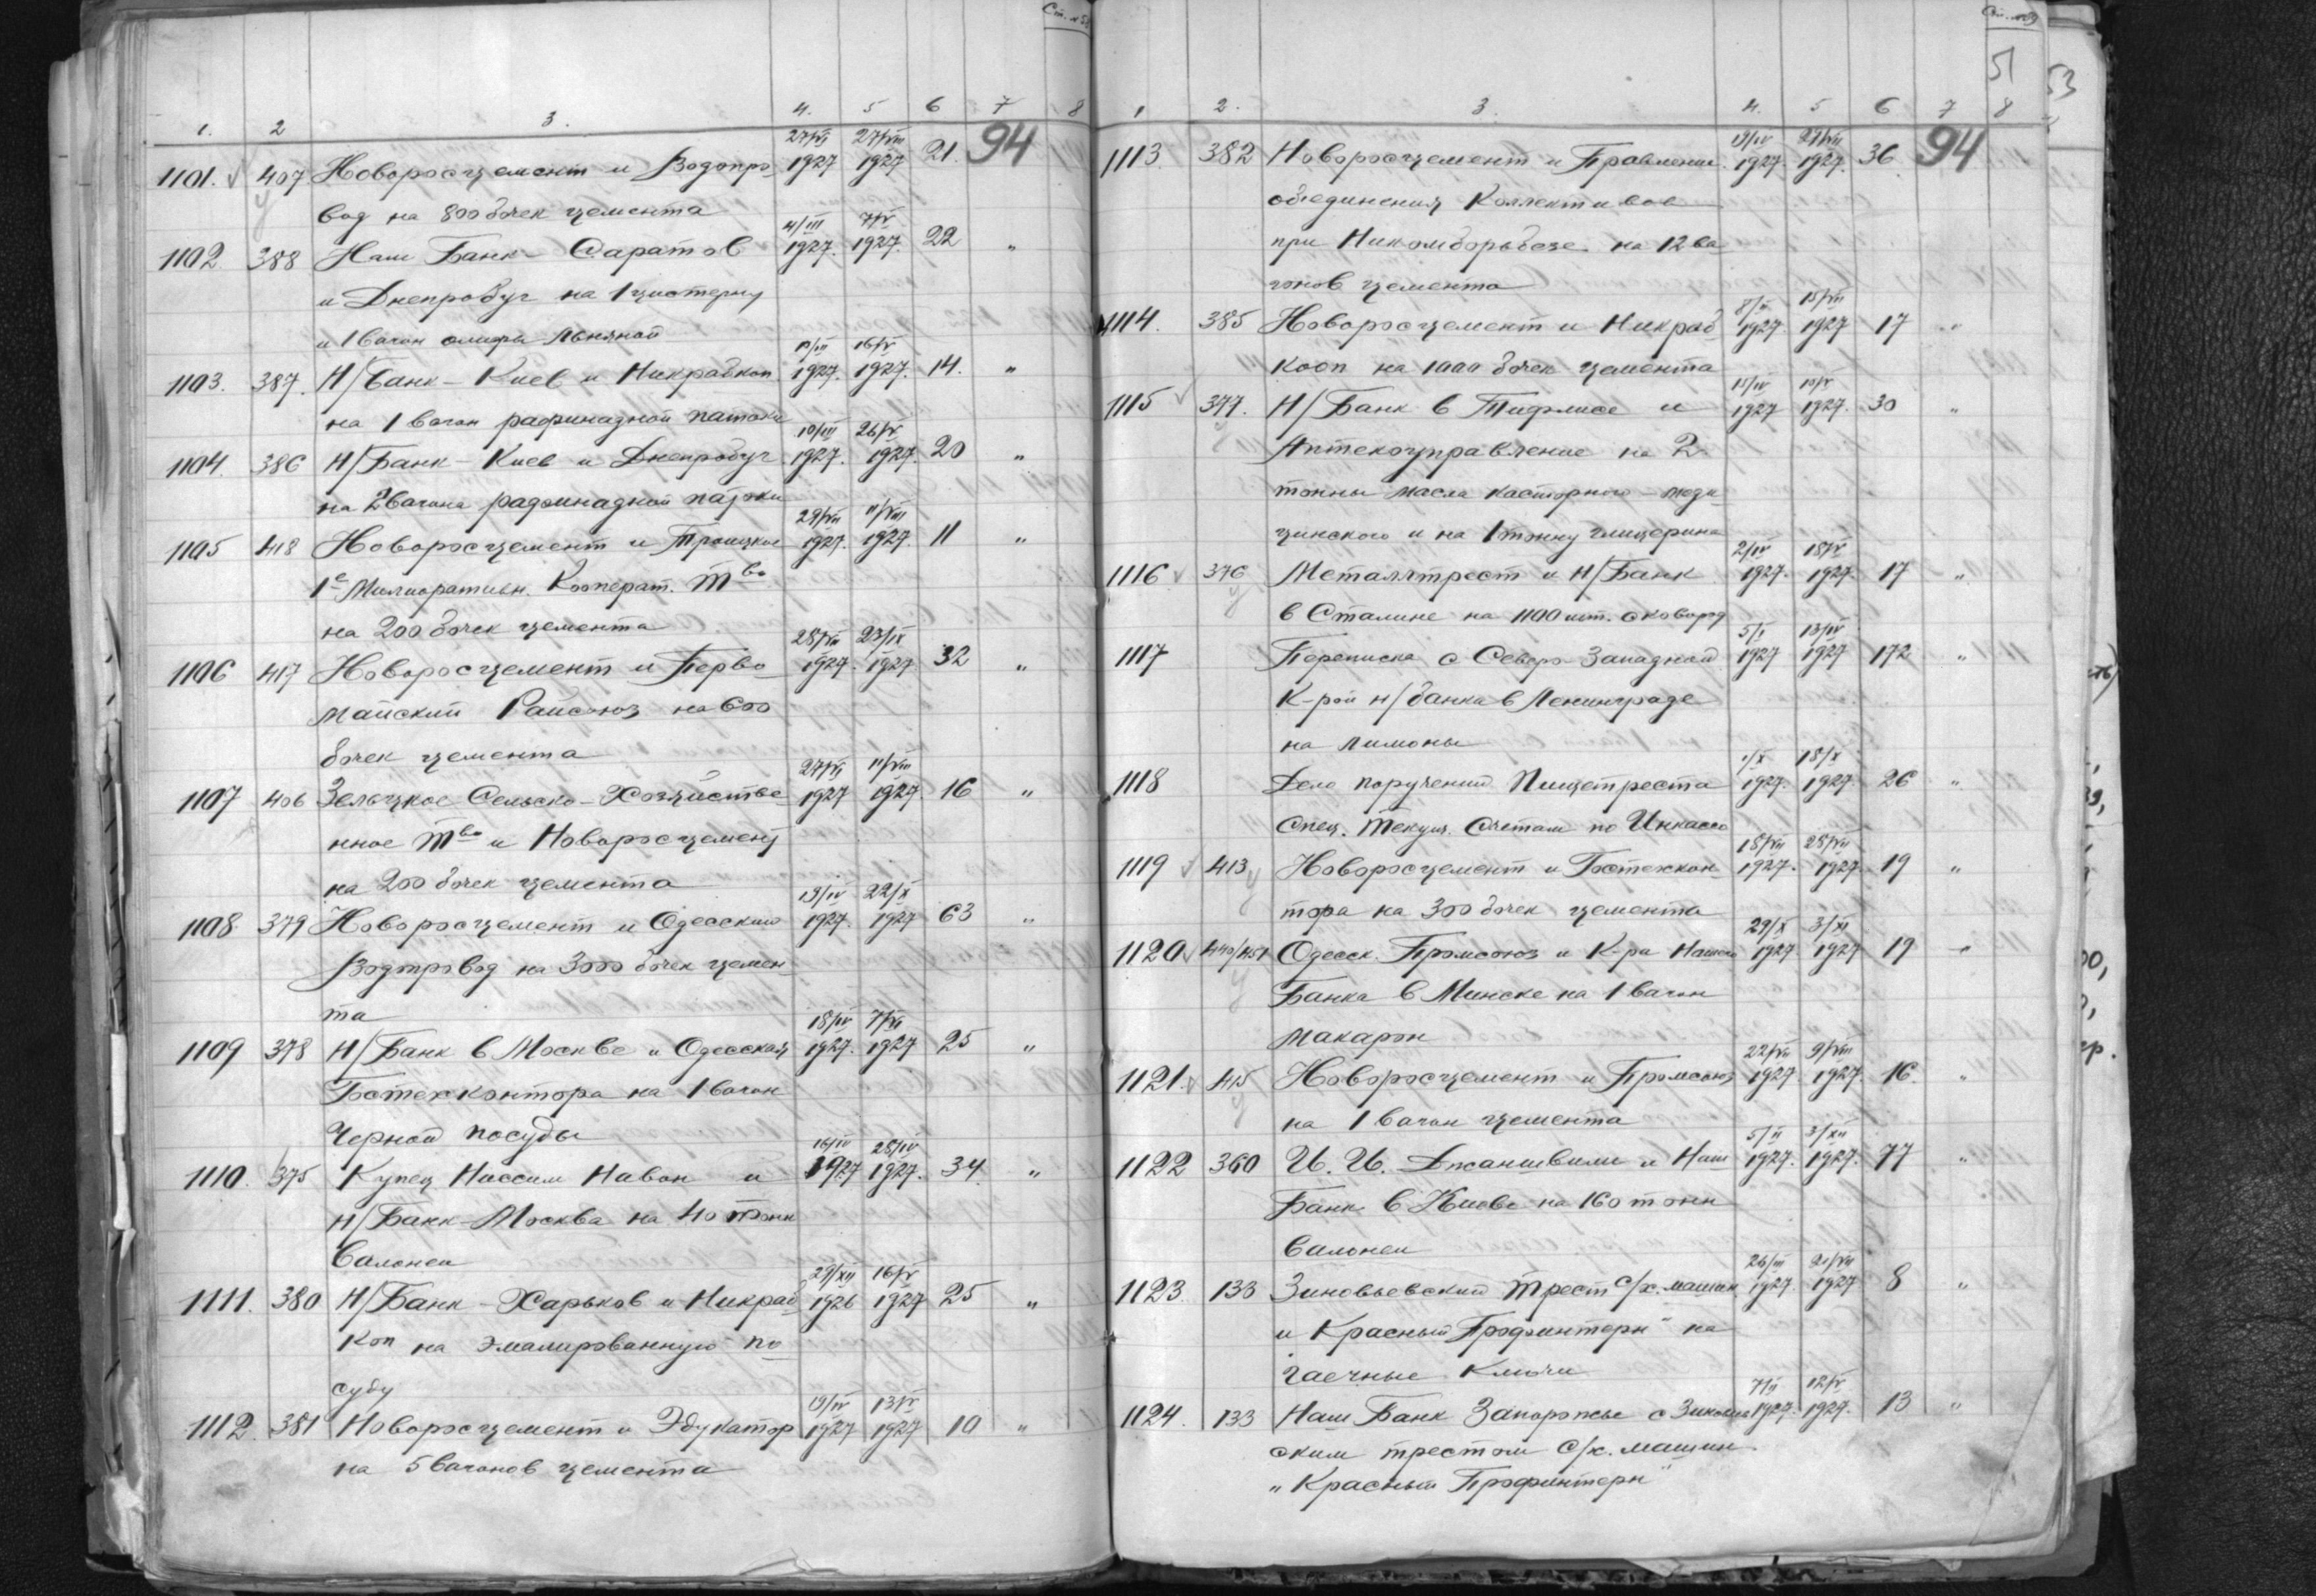 Ст. № 5
1. 2 3. 4. 5 6 7 8
27/VI 27/VIII
1101. 407 Новоросцемент и Водопро- 1927 1927 21. 94
вод на 800 бочек цемента
4/III 7/V
1102 388 Наш Банк - Саратов 1927. 1927. 22 "
и Днепробуг на 1 цистерну
и 1 вагон олифы льняной
1927. 16/V
1103. 387. Н/Банк - Киев и Никрабкоп 1927. 14. "
на 1 вагон рафинадной патоки
10/III 26/V
1104. 386 Н/Банк - Киев и Днепробуг 1927. 1927. 20 "
на 2 вагона рафинадной патоки
29/VII 11/VIII
1105 418 Новоросцемент и Троицкое 1927. 1927. 11 "
1е Милиоративн. Кооперат. Тво
на 200 бочек цемента
28/VII 23/IX
1106 417 Новоросцемент и Перво- 1927. 1927 32 "
майский Райсоюз на 600
бочек цемента
27/VI 11/VIII
1107 406 Зельцкое Сельско-Хозяйстве- 1927 1927 16 "
нное Тво и Новоросцемент
на 200 бочек цемента
19/IV 22/X
1108 379 Новоросцемент и Одесский 1927. 1927 63 "
Водопровод на 3000 бочек цемен
та
18/IV 7/VI
1109 378 Н/Банк в Москве и Одесская 1927. 1927 25 "
Гостехконтора на 1 вагон
Черной посуды
16/IV 28/IV
1110. 375 Купец Ниссим Навон и 1927 1927. 34. "
Н/Банк - Москва на 40 тонн
Валонеи
29/XII 16/V
1111. 380 Н/Банк - Харьков и Никраб 1926 1927 25 "
коп на эмалированную по-
суду
19/IV 13/V
1112. 381 Новоросцемент и Эдукатор 1927 1927 10 "
на 5 вагонов цемента
51
1 2. 3. 4. 5 6 7 8
19/IV
1113. 382 Новоросцемент и Правление 1927. 1927. 36 94
обединения Коллективов
при Никомборьбезе на 12 ва-
гонов цемента
15/VII
1114. 385 Новоросцемент и Никраб 1927. 1927 17 "
кооп на 1000 бочек цемента
1115 377. Н/Банк в Тифлисе и 1927 1927. 30 "
Аптекоуправление на 2
тонны масла касторного - меди
цинского и на 1 тонну глицерина
2/IV 18/V
1116 376 Металлтрест и Н/Банк 1927. 1927. 17 "
в Сталине на 1100 шт. сковород
5/I 13/IV
1117 Переписка с Северо-Западной 1927 1927 172 "
К-рой н/банка в Ленинграде
на лимоны
1/X 18/X
1118 Дело поручений Пищетреста 1927. 1927. 26 "
Спец. Текущ. Счетам по Инкассо
18/VII 28/VII
1119 413 Новоросцемент и Гостехкон- 1927. 1927. 19 "
тора на 300 бочек цемента
29/X 3/XI
1120 440/451 Одесск. Промсоюз и К-ра Нашего 1927 1927 19 "
Банка в Минске на 1 вагон
макарон
22/VII 9/VIII
1121. 415 Новоросцемент и Промсоюз 1927. 1927. 16. "
на 1 вагон цемента
5/II 3/XII
1122 360 И. И. Джаншвили и Наш 1927. 1927. 77 "
Банк в Киеве на 160 тонн
валонеи
26/III
1123 133 Зиновьевский Трест с/х. машин 1927. 1927 8 "
и Красный Профинтерн" на
гаечные ключи
12/V
1124. 133 Наш Банк Запорожье с Зиновьев 1927. 1927. 13 "
ским трестом с/х. машин
"Красный Профинтерн"